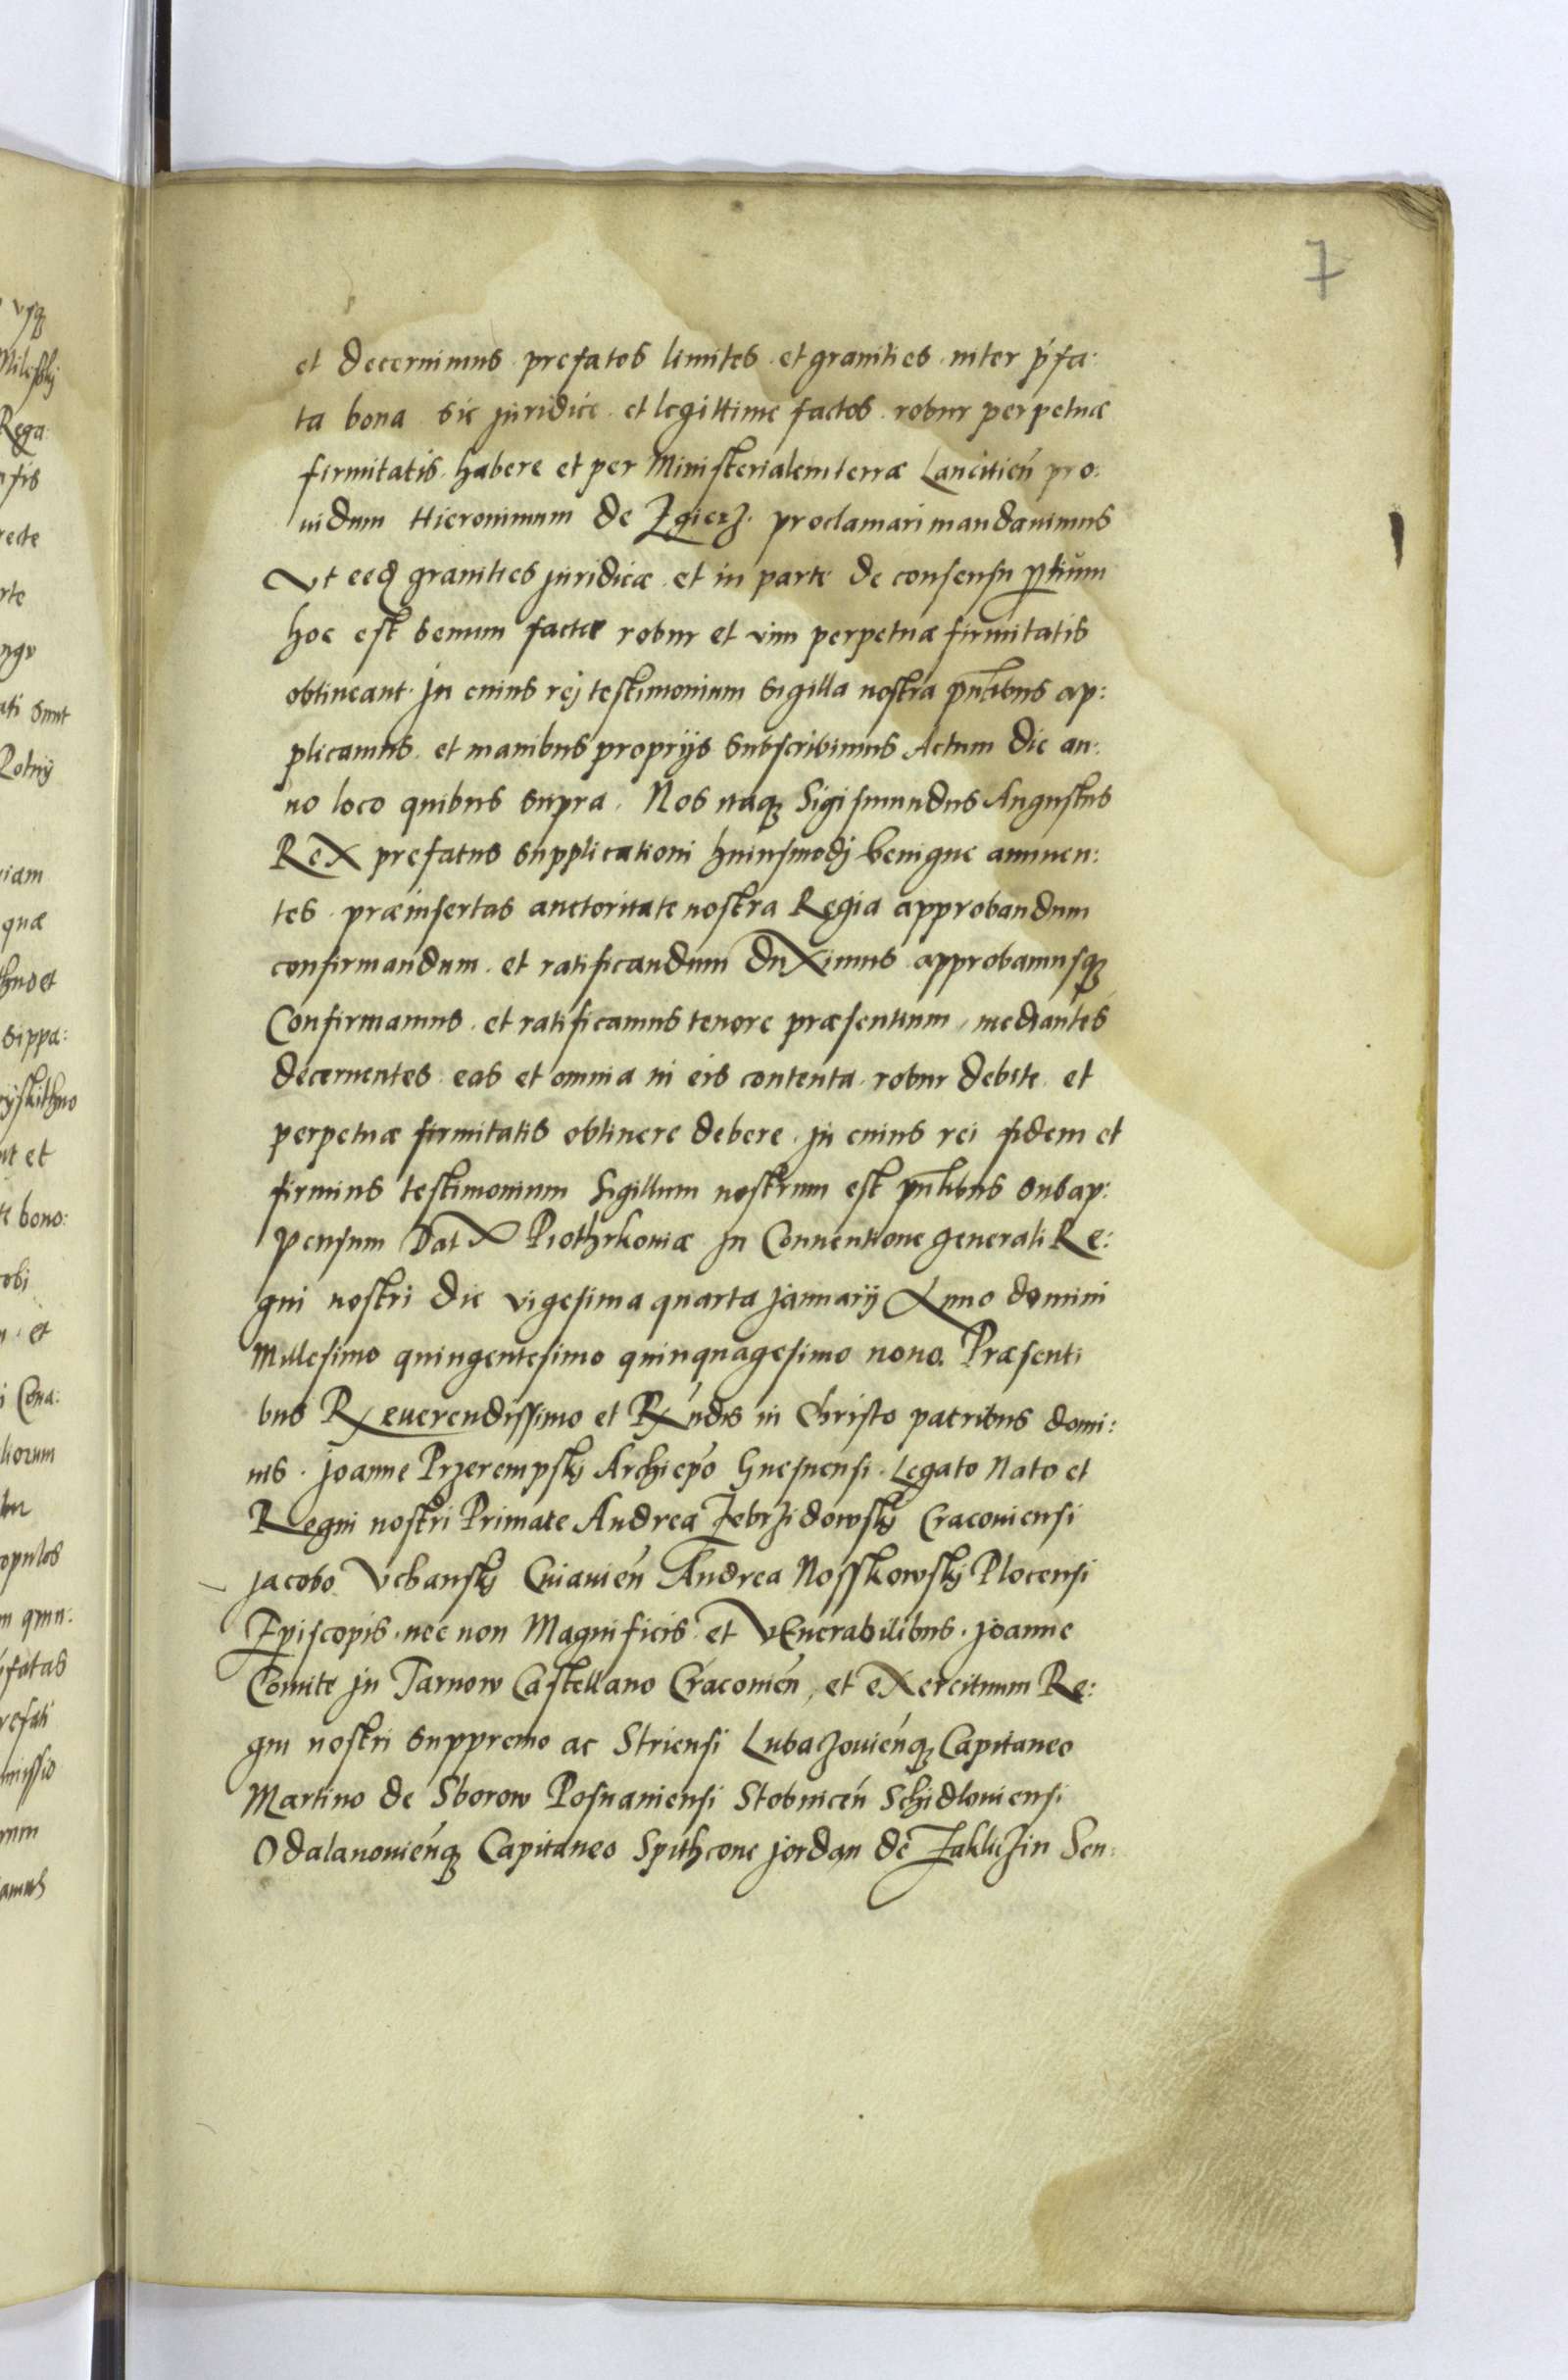 7
et decernimus prefatos limites et granities inter p̃fa:
ta bona sic juridice et legittime factos robur perpetuæ
firmitatis habere et per Ministerialem terræ Lanciticń pro:
uidum Hieronimum de Zgierz. proclamari mandauimus
Vt eedẽ granities juridicæ et in parte de consensu partium
hoc est bonum factæ robur et vim perpetuæ firmitatis
obtineant. In cuius rej testimonium sigilla nostra pñtibus ap:
plicamus et manibus proprijs subscribimus Actum die an:
no loco quibus supra. Nos itaq; Sigismundus Augustus
Rex prefatus supplicationi huiusmodj benigne annuen:
tes præinsertas auctoritate nostra Regia approbandum
confirmandum et ratificandum duximus approbamusq;
Confirmamus et ratificamus tenore præsentium, mediantes
decernentes eas et omnia in eis contenta robur debite et
perpetuæ firmitatis obtinere debere. In cuius rei fidem et
firmius testimonium Sigillum nostrum est pñtibus subap:
pensum Dat Piothrkouiæ In Conuentione generali Re:
gni nostri die vigesima quarta Januarij Anno domini
Millesimo quingentesimo quinquagesimo nono. Præsenti
bus Reuerendissimo et Rńdis in Christo patribus domi:
nis. Joanne Przerempskj Archiepõ Gnesnensi. Legato Nato et
Regni nostri Primate Andrea Zebrzidowskj Cracouiensi
Jacobo Vchanskj Cuiauień Andrea Nosskowskj Plocensi
Episcopis. nec non Magnificis et Venerabilibus. Joanne
Comite In Tarnow Castellano Cracouień, et exercituum Re:
gni nostri suppremo ac Striensi Lubaczouieńq; Capitaneo
Martino de Sborow Posnaniensi Stobniceń Schidlouiensi
Odalanouieńq; Capitaneo Spithcone Jordan de Zakliczin Sen: